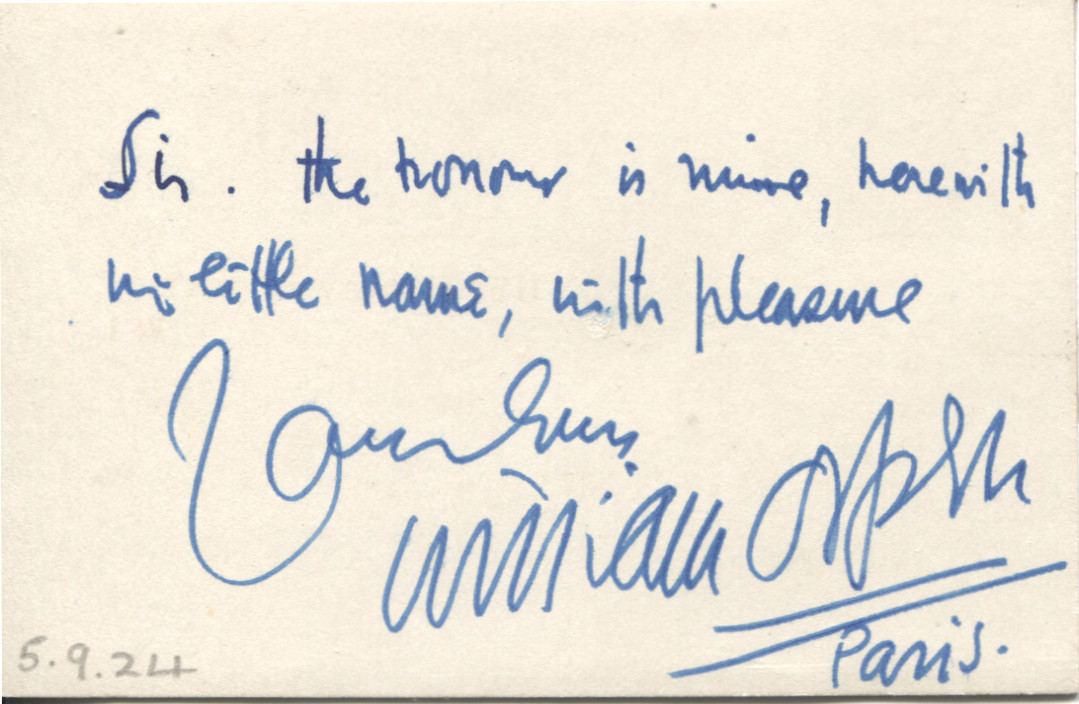 Sir. the honour is mine, herewith
my little name, with pleasure
Yours
William Orpen
Paris.
5.9.24